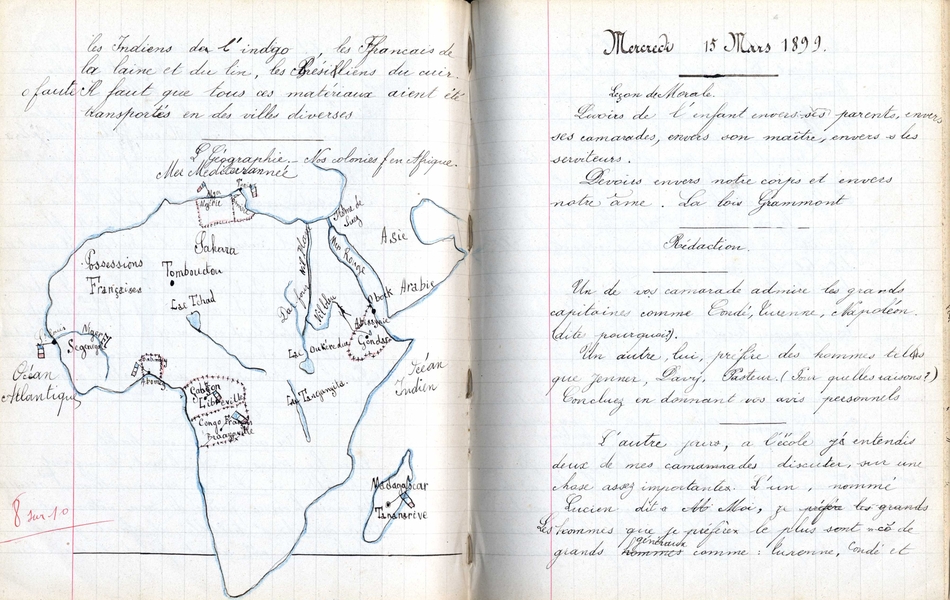 les Indiens de l'indigo, les Français de
la laine et du lin, les Brésiliens du cuir.
0 faute Il faut que tous ces matériaux aient été
transportés en des villes diverses
Géographie. Nos colonies f en Afrique.
Mer Méditerrannée
Algérie
Isthme de
Suez
Sahara
Asie
Mer Rouge
Nil Blanc
Possessions
Françaises
Tombouctou
Darfour
Nil bleu
Obock
Arabie
Lac Tchad
St Louis
Niger
Sénégal
Abyssinie
Gondar
Lac
Océan
Atlantique
Dahomey
Abomey
Océan
Indien
Gabon
Libreville
Lac Tanganyka
Congo Français
Brazzaville
Madagascar
Tananrive
8 sur 10
Mercredi 15 Mars 1899.
Leçon de Morale.
Devoirs de l'enfant envers ses parents, envers
ses camarades, envers son maître, envers s les
serviteurs.
Devoirs envers notre corps et envers
notre âme. La lois Grammont
Rédaction.
Un de vos camarade admire les grands
capitaines comme Condé, Turenne, Napoléon.
(dite pourquoi).
Un autre, lui, préfère des hommes tels
que Jenner, Davy, Pasteur. (Pour quelles raisons?)
Concluez en donnant vos avis personnels
L'autre jours, a l'école j'ai entendis
deux de mes camamrades discuter, sur une
chose assez importantes. L'un, nommé
Lucien dit a Moi, je préfère les grands
Les hommes que je préfèrer le plus sont de
généraux
grands hommes comme : Turenne, Condé et